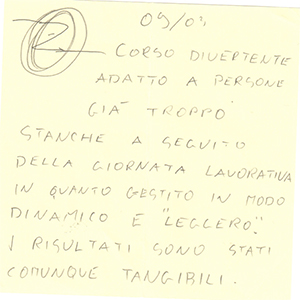 09/09
CORSO DIVERTENTE
ADATTO A PERSONE
GIÀ TROPPO
STANCHE A SEGUITO
DELLA GIORNATA LAVORATIVA
IN QUANTO GESTITO IN MODO
DINAMICO E "LEGGERO".
I RISULTATI SONO STATI
COMUNQUE TANGIBILI.